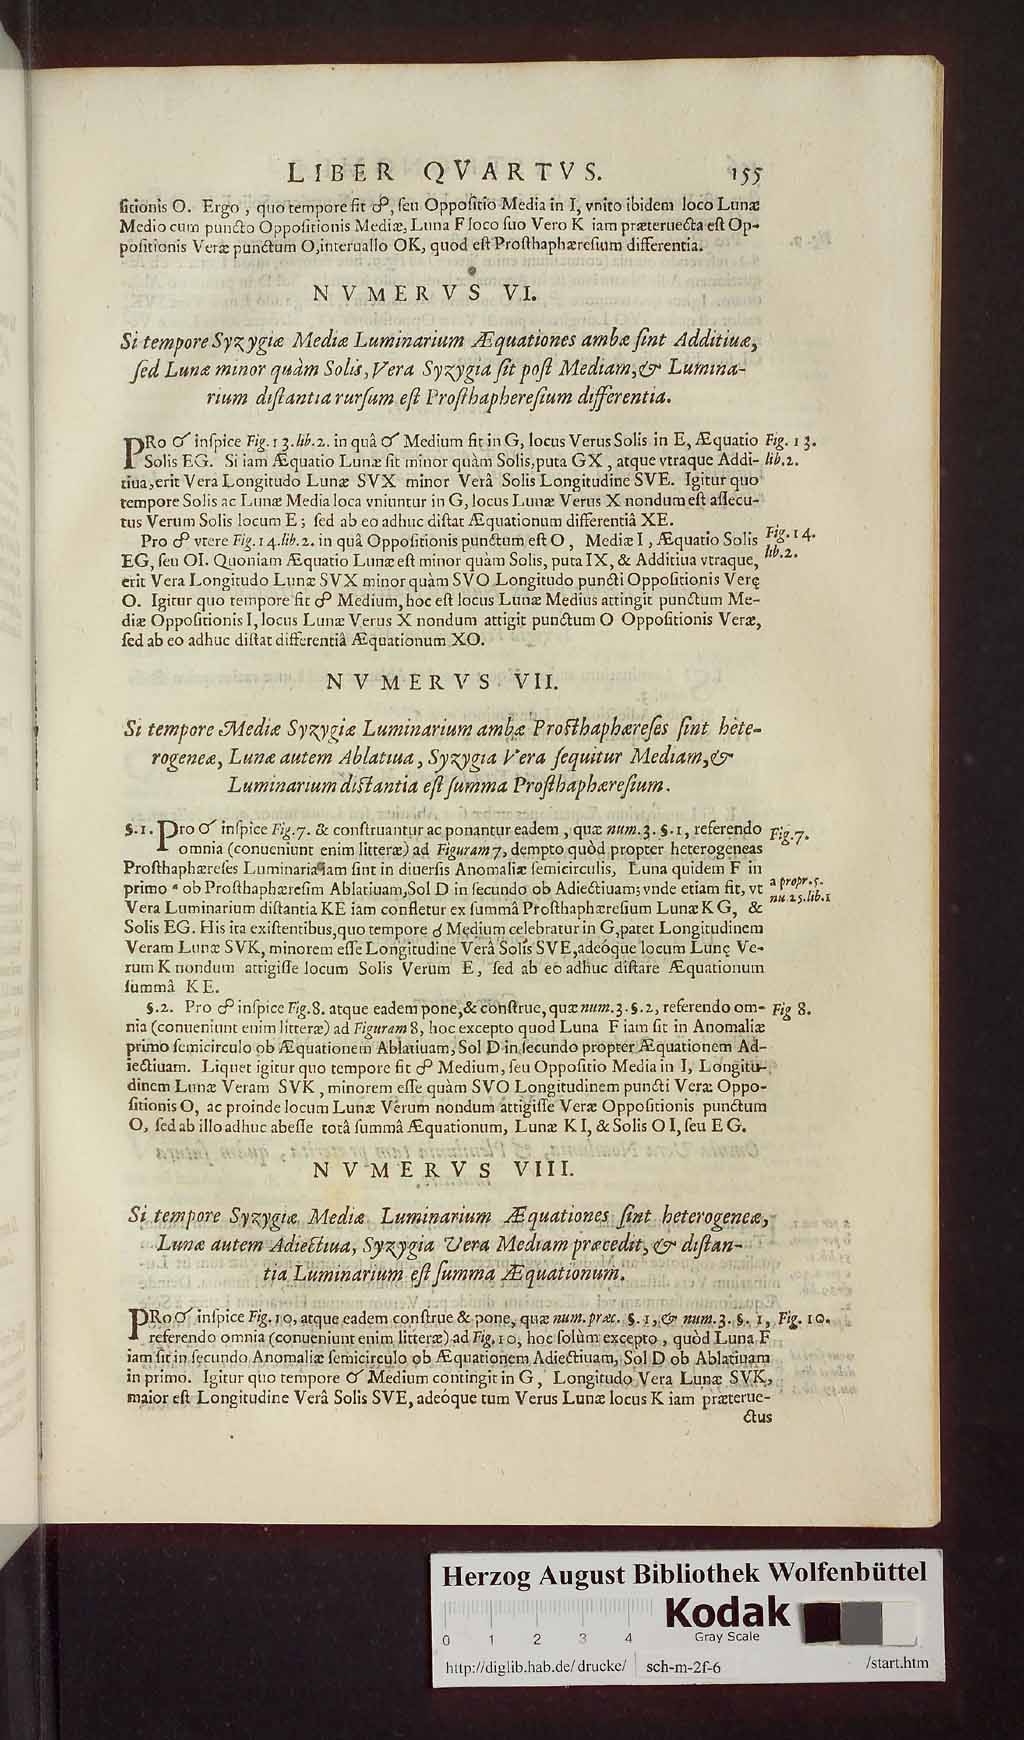 LIBER QVARTVS. 155
ſitionis O. Ergo, quo tempore fit ☍, ſeu Oppoſitio Media in I, vnito ibidem loco Lunæ
Medio cum puncto Oppoſitionis Mediæ, Luna F loco ſuo Vero K iam præteruecta eſt Op-
poſitionis Veræ punctum O, interuallo OK, quod eſt Proſthaphæreſium differentia.
NVMERVS VI.
Si tempore Syzygiæ Mediæ Luminarium Æquationes ambæ ſint Additiuæ,
ſed Lunæ minor quàm Solis, Vera Syzygia fit poſt Mediam, & Lumina-
rium diſtantia rurſum eſt Proſthaphereſium differentia.
PRo ☌ inſpice Fig. 13. lib. 2. in quâ ☌ Medium fit in G, locus Verus Solis in E, Æquatio Fig. 13.
Solis EG. Si iam Æquatio Lunæ ſit minor quàm Solis, puta GX, atque vtraque Addi- lib. 2.
tiua, erit Vera Longitudo Lunæ SVX minor Verâ Solis Longitudine SVE. Igitur quo
tempore Solis ac Lunæ Media loca vniuntur in G, locus Lunæ Verus X nondum eſt aſſecu-
tus Verum Solis locum E; ſed ab eo adhuc diſtat Æquationum differentiâ XE.
Pro ☍ vtere Fig. 14. lib. 2. in quâ Oppoſitionis punctum eſt O, Mediæ I, Æquatio Solis Fig. 14.
EG, ſeu OI. Quoniam Æquatio Lunæ eſt minor quàm Solis, puta IX, & Additiua vtraque, lib. 2.
erit Vera Longitudo Lunæ SVX minor quàm SVO Longitudo puncti Oppoſitionis Verę
O. Igitur quo tempore fit ☍ Medium, hoc eſt locus Lunæ Medius attingit punctum Me-
diæ Oppoſitionis I, locus Lunæ Verus X nondum attigit punctum O Oppoſitionis Veræ,
ſed ab eo adhuc diſtat differentiâ Æquationum XO.
NVMERVS VII.
Si tempore Mediæ Syzygiæ Luminarium ambæ Proſthaphæreſes ſint hete-
rogeneæ, Lunæ autem Ablatiua, Syzygia Vera ſequitur Mediam, &
Luminarium diſtantia eſt ſumma Proſthaphæreſium.
§. 1. Pro ☌ inſpice Fig. 7. & conſtruantur ac ponantur eadem, quæ num. 3. §. 1, referendo Fig. 7.
omnia (conueniunt enim litteræ) ad Figuram 7, dempto quòd propter heterogeneas
Proſthaphæreſes Luminaria iam ſint in diuerſis Anomaliæ ſemicirculis, Luna quidem F in
primo a ob Proſthaphæreſim Ablatiuam, Sol D in ſecundo ob Adiectiuam; vnde etiam fit, vt a propr. 5.
Vera Luminarium diſtantia KE iam confletur ex ſummâ Proſthaphæreſium Lunæ KG, & nu. 25. lib. 1
Solis EG. His ita exiſtentibus, quo tempore ☌ Medium celebratur in G, patet Longitudinem
Veram Lunæ SVK, minorem eſſe Longitudine Verâ Solis SVE, adeóque locum Lunę Ve-
rum K nondum attigiſſe locum Solis Verum E, ſed ab eo adhuc diſtare Æquationum
ſummâ KE.
§. 2. Pro ☍ inſpice Fig. 8. atque eadem pone, & conſtrue, quæ num. 3. §. 2, referendo om- Fig 8.
nia (conueniunt enim litteræ) ad Figuram 8, hoc excepto quod Luna F iam ſit in Anomaliæ
primo ſemicirculo ob Æquationem Ablatiuam, Sol D in ſecundo propter Æquationem Ad-
iectiuam. Liquet igitur quo tempore fit ☍ Medium, ſeu Oppoſitio Media in I, Longitu-
dinem Lunæ Veram SVK, minorem eſſe quàm SVO Longitudinem puncti Veræ Oppo-
ſitionis O, ac proinde locum Lunæ Verum nondum attigiſſe Veræ Oppoſitionis punctum
O, ſed ab illo adhuc abeſſe totâ ſummâ Æquationum, Lunæ KI, & Solis OI, ſeu EG.
NVMERVS VIII.
Si tempore Syzygiæ Mediæ Luminarium Æquationes ſint heterogeneæ,
Lunæ autem Adiectiua, Syzygia Vera Mediam præcedit, & diſtan-
tia Luminarium eſt ſumma Æquationum.
PRo ☌ inſpice Fig. 10, atque eadem conſtrue & pone, quæ num. præc. §. 1, & num. 3. §. 1, Fig. 10.
referendo omnia (conueniunt enim litteræ) ad Fig. 10, hoc ſolùm excepto, quòd Luna F
iam ſit in ſecundo Anomaliæ ſemicirculo ob Æquationem Adiectiuam, Sol D ob Ablatiuam
in primo. Igitur quo tempore ☌ Medium contingit in G, Longitudo Vera Lunæ SVK,
maior eſt Longitudine Verâ Solis SVE, adeóque tum Verus Lunæ locus K iam præterue-
ctus
Herzog August Bibliothek Wolfenbüttel
Kodak
0 1 2 3 4 Gray Scale
http://diglib.hab.de/drucke/ sch-m-2f-6 /start.htm